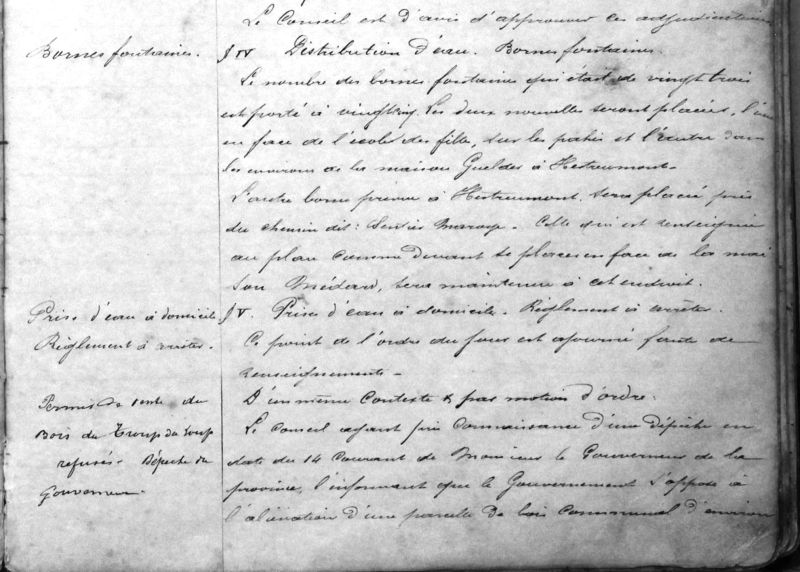 Le Conseil est d'avis d'approuver ces adjudications
Bornes fontaines.
§ IV Distribution d'eau. Bornes fontaines.
Le nombre des bornes fontaines qui était de vingt trois
est porté à vingt cinq. Les deux nouvelles seront placées, l'une
en face de l'école des filles, sur les et l'autre dans
les environs de la maison Guelder à Hestreumont.
L'autre borne prévue à Hestreumont, sera placée près
du chemin dit: Sentier Marage. Celle qui est renseignée
au plan comme devant se placer en face de la mai
son Médard, sera maintenue à cet endroit.
Prise d'eau à domicile
Règlement à arrêter.
§ V. Prise d'eau à domicile. Règlement à arrêter.
Ce point de l'ordre du jour est ajourné faute de
renseignements.
Permis de vente du
Bois du Troup du Loup
refusés. Dépêche du
Gouverneur.
D'un même contexte & par motion d'ordre.
Le Conseil ayant pris connaissance d'une dépêche en
date du 14 courant de Monsieur le Gouverneur de la
province, l'informant que le Gouvernement s'oppose à
l'aliénation d'une parcelle de bois communal d'environ